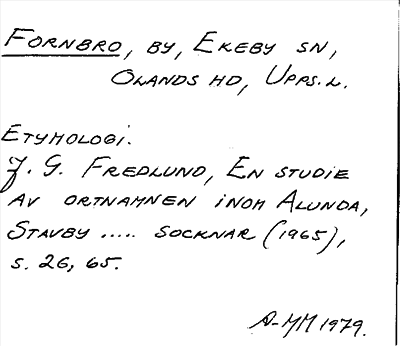 FORNBRO, BY, EKEBY SN,
OLANDS HD, UPPS. L.
ETYMOLOGI.
J. G. FREDLUND, EN STUDIE
AV ORTNAMNEN INOM ALUNDA,
STAVBY ..... SOCKNAR (1965),
S. 26, 65.
A-MM 1979.